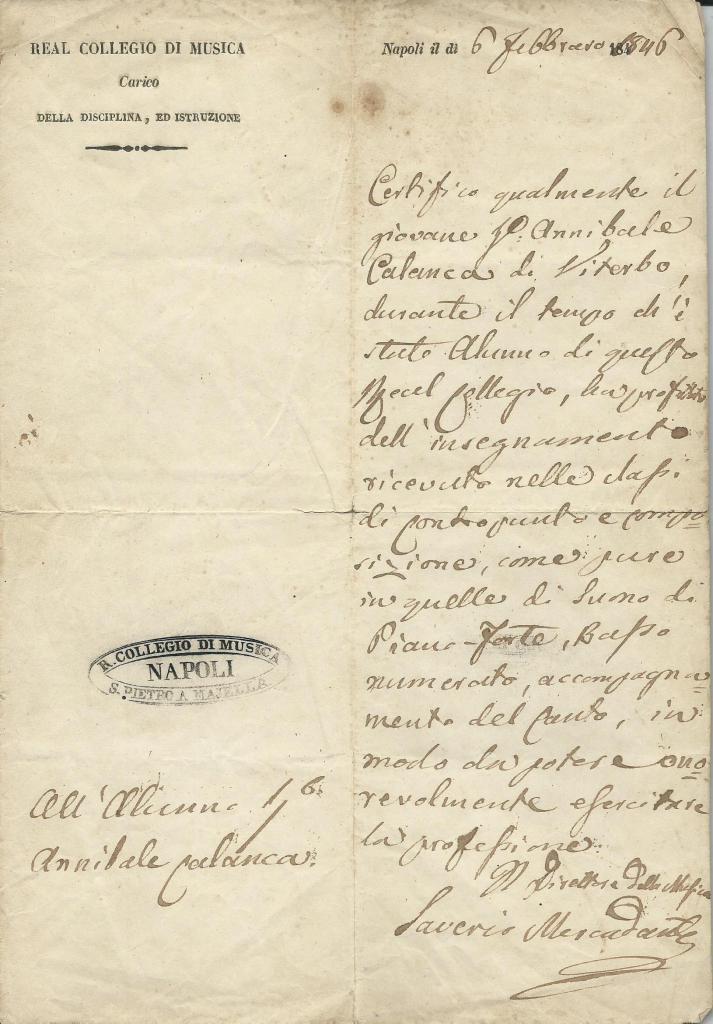 REAL COLLEGIO DI MUSICA
Carico
DELLA DISCIPLINA, ED ISTRUZIONE
Napoli il dì 6 Febbraro 1846
Certifico qualmente il
giovane D. Annibale
Calanca di Viterbo,
durante il tempo ch'è
stato Alunno di questo
Real Collegio, ha profittato
dell'insegnamento
ricevuto nelle classi
di contropunto e compo=
sizione, come pure
in quelle di Suono di
Piano-forte, Basso
numerato, accompagna=
mento del Canto, in
modo da potere ono=
revolmente esercitare
la professione.
Il Direttore della Musica
Saverio Mercadante
R. COLLEGIO DI MUSICA
NAPOLI
S. PIETRO A MAJELLA
All'Alunno
Annibale Calanca.